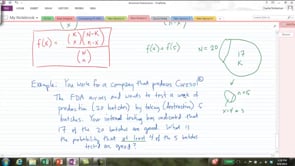 My Notebook
f(x) =
(K x)(N-K n-x)
(N n)
f(4) + f(5)
N = 20
17
K
n = 5
x = 4 = 5
Example: You work for a company that produces Cureso®
The FDA arrives and wants to test a week of
production (20 batches) by taking (destructive) 5
batches. Your internal testing has indicated that
17 of the 20 batches are good. What is
the probability that at least 4 of the 5 batches
tested are good?